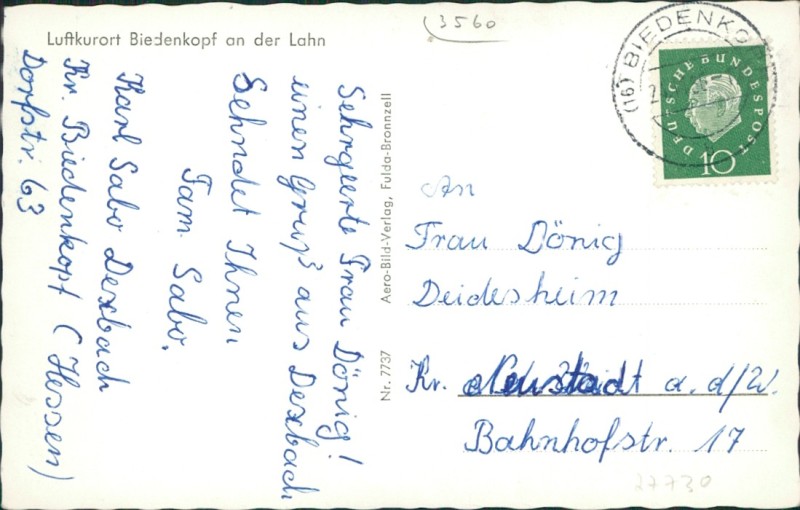 Luftkurort Biedenkopf an der Lahn
(3560
Sehrgeerte Frau Dönig!
einen Gruß aus Dexbach
Sehndet Ihnen
Fam. Sabo.
Karl Sabo Dexbach
Kr. Biedenkopf (Hessen)
Dorfstr. 63
Nr. 7737 Aero-Bild-Verlag, Fulda-Bronnzell
(16) BIEDENKO
DEUTSCHE BUNDESPOST
10
An
Frau Dönig
Deidesheim
Kr. Neustadt a. d/W.
Bahnhofstr. 17
27730